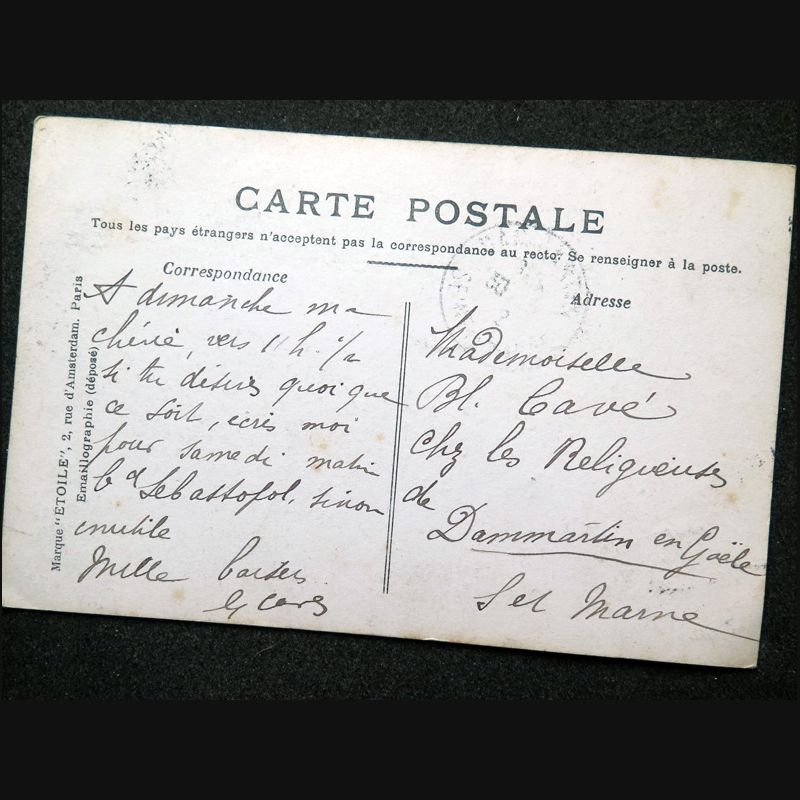 CARTE POSTALE
Tous les pays étrangers n'acceptent pas la correspondance au recto. Se renseigner à la poste.
Correspondance
A dimanche ma
chérie, vers 11 h.
si tu désires quoi que
ce soit, ecris moi
pour samedi matin
Bd Sebastopol, sinon
inutile
Mille baisers
Adresse
Mademoiselle
Bl. Cavé
Chez les Religieuses
de
Dammartin en Goële
S et Marne
Marque "ÉTOILE", 2, rue d'Amsterdam. Paris
Emaillographie (déposé)